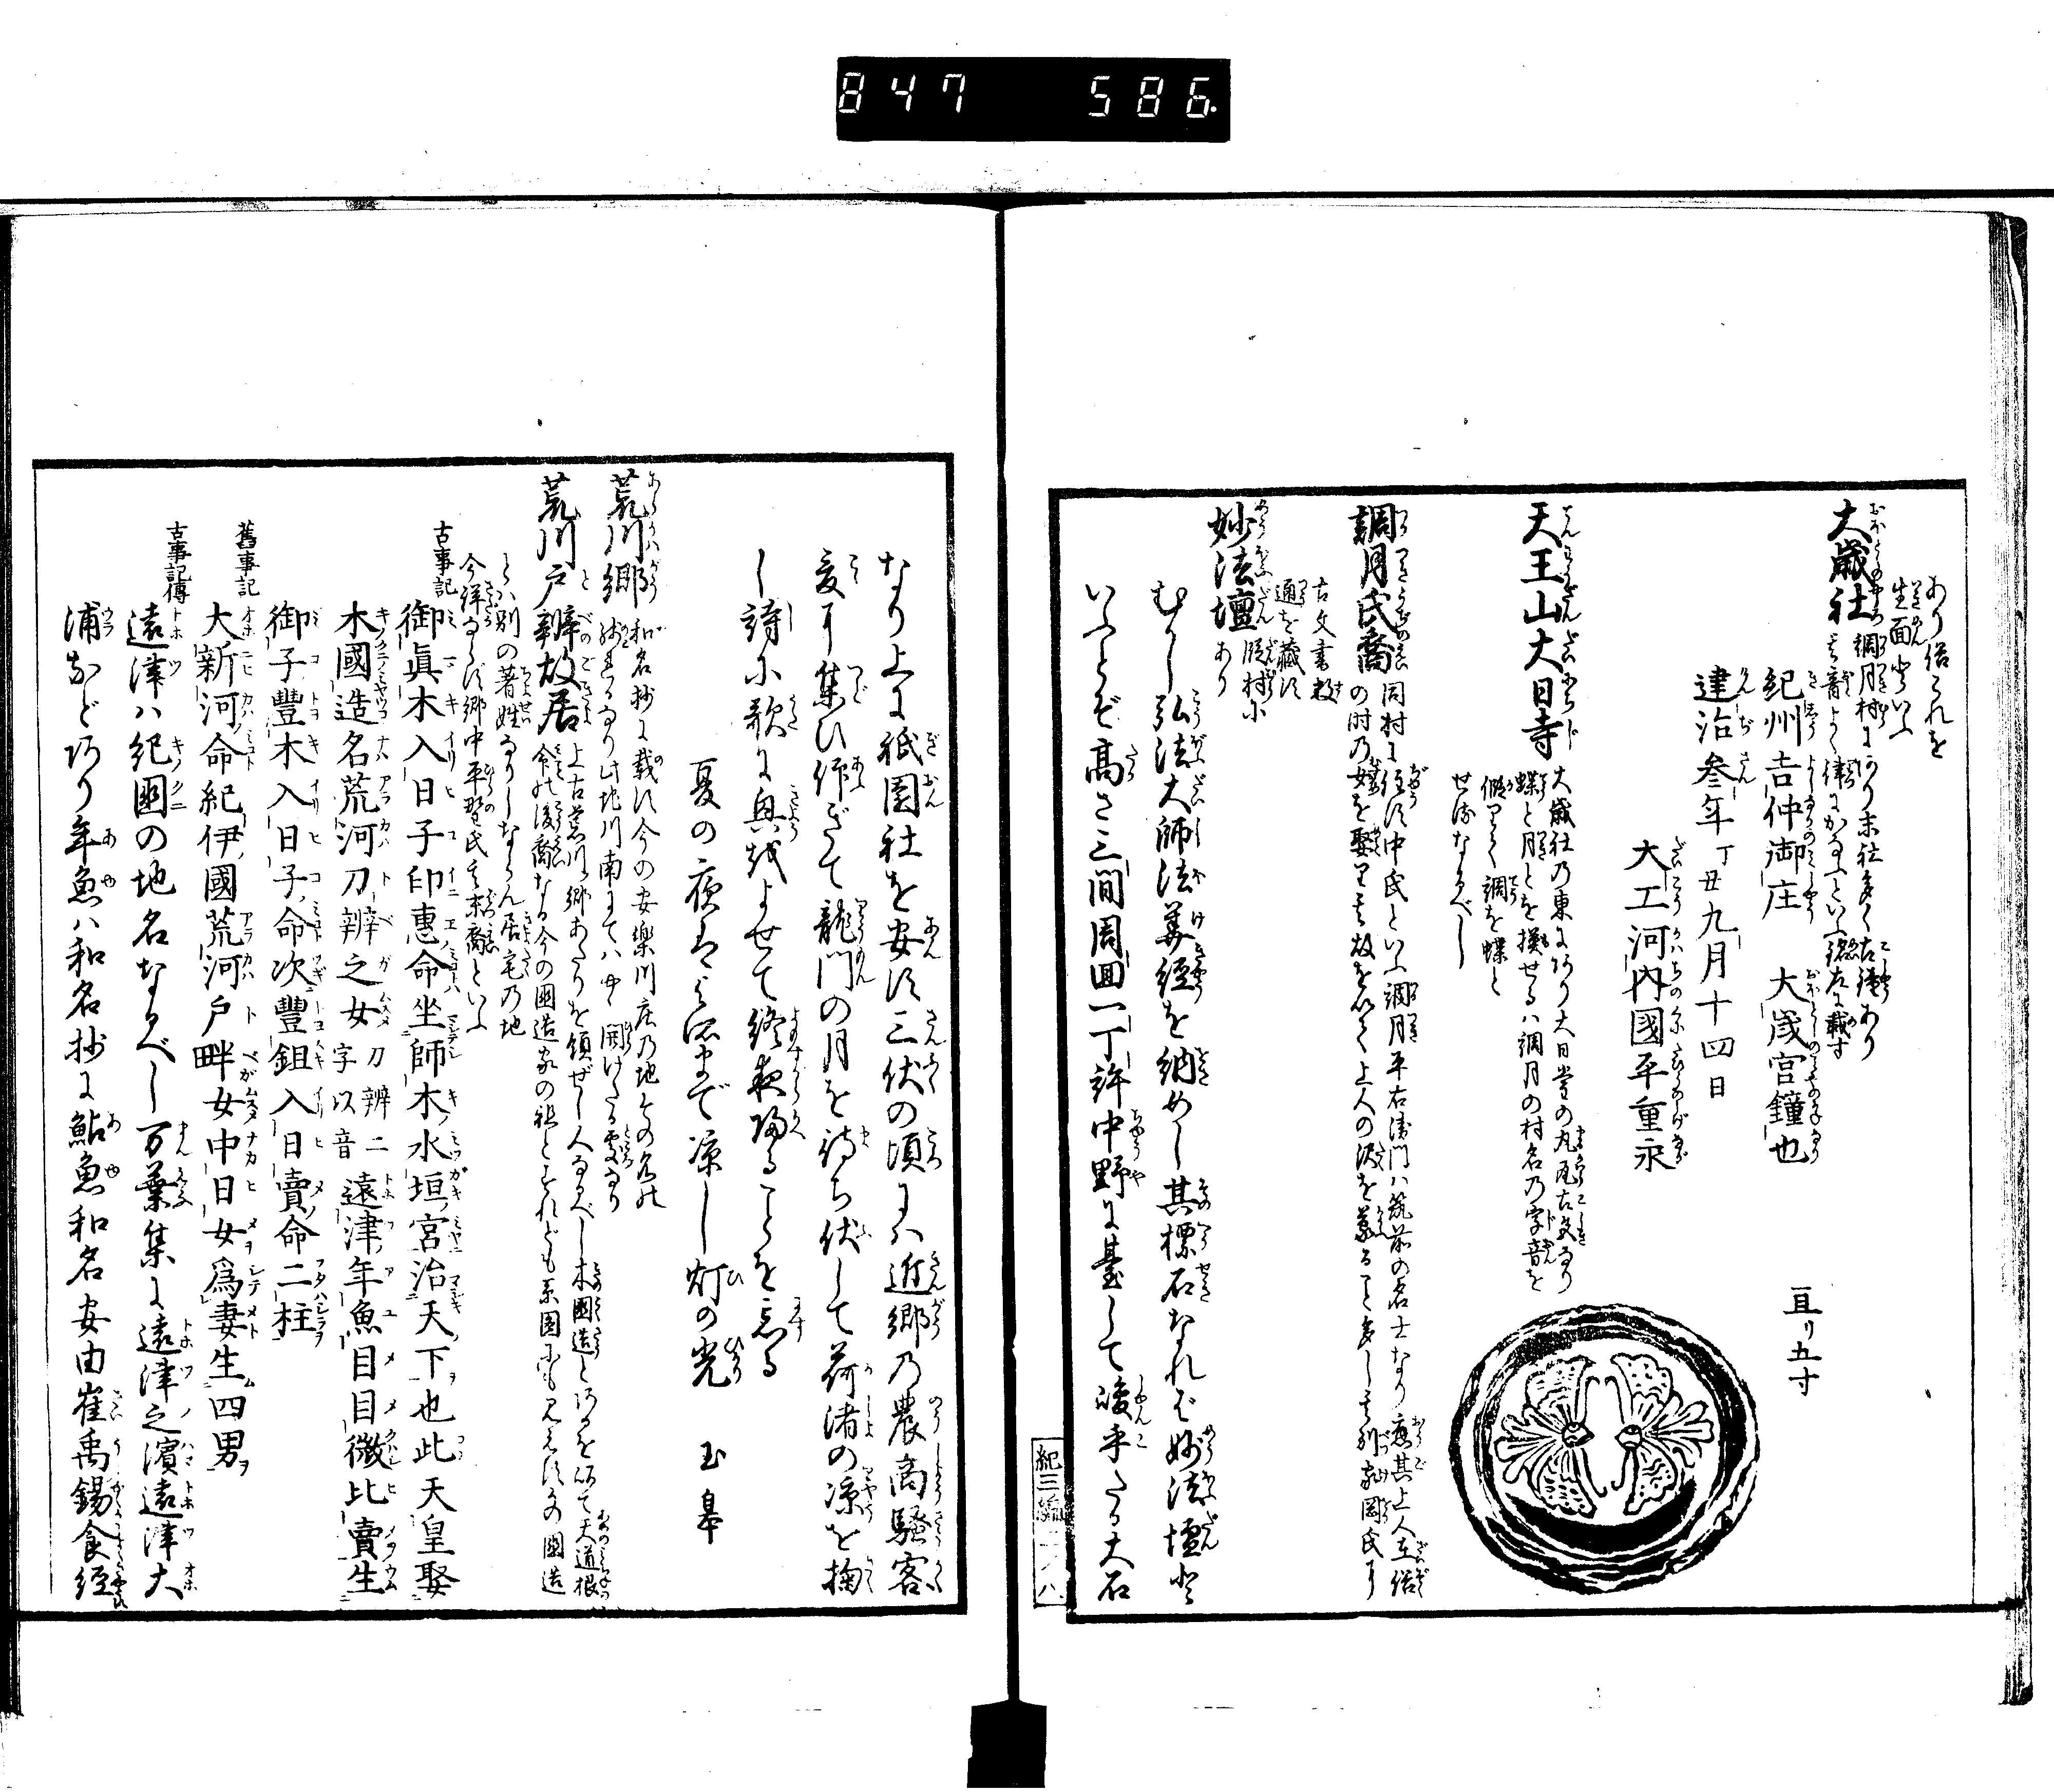 847 586.
あり俗これを
生面堂といふ
大歳社 調月村にあり末社多く古鐘あり
其音よく律にかなふといふ銘左に載す
紀州吉仲御庄 大歳宮鐘也
建治叁年丁丑九月十四日
大工河内國平重永
亘リ五寸
天王山大日寺 大歳社乃東にあり大日堂の丸瓦古文なり
蝶と月とを摸せるハ調月の村名乃字音を
假りて調を蝶と
せるなるべし
調月氏裔 同村に住す中氏といふ調月平右衛門ハ筑前の名士なり應其上人在俗
の时乃女を娶りし故を以て上人の 多し其別家岡氏に
古文書数
通を藏む
妙法壇 段村に
あり
むかし弘法大師法華経を納めし其標石なれバ妙法壇と
いふとぞ高さ三間周囬一丁許中野に基して峻乎たる大石
紀三編 六ノ八
なり上に祇園社を安ず三伏の頃にハ近郷乃農商騒客
爰に集ひ仰ぎて龍門の月を待ち伏して荷渚の凉を掬
し詩に歌に興をよせて終夜帰ることを忘る
夏の夜は 凉し灯の光 玉皐
荒川郷 和名抄に載す今の安樂川庄乃地その名の
残れるなり此地川南にてハ 開けたる處なり
荒川戸辨故居 上古荒川郷あたりを領ぜし人なるべし木國造とあるを以て天道根
命の後裔なる今の國造家の祖とすれども系圖にも見えず の國造
とハ別の著姓なりしならん居宅乃地
今詳ならず郷中平野氏其末裔といふ
古事記
御眞木入日子印惠命坐師木水垣宮治天下也此天皇娶
木國造名荒河刀辨之女刀辨二字以音遠津年魚目目微比賣生
御子豐木入日子命次豐鉏入日賣命二柱
舊事記
大新河命紀伊國荒河戸畔女中日女爲妻生四男
古事記傳
遠津ハ紀國の地名なるべし万葉集に遠津之濱遠津大
浦などあり年魚ハ和名抄に鮎魚和名安由崔禹錫食経